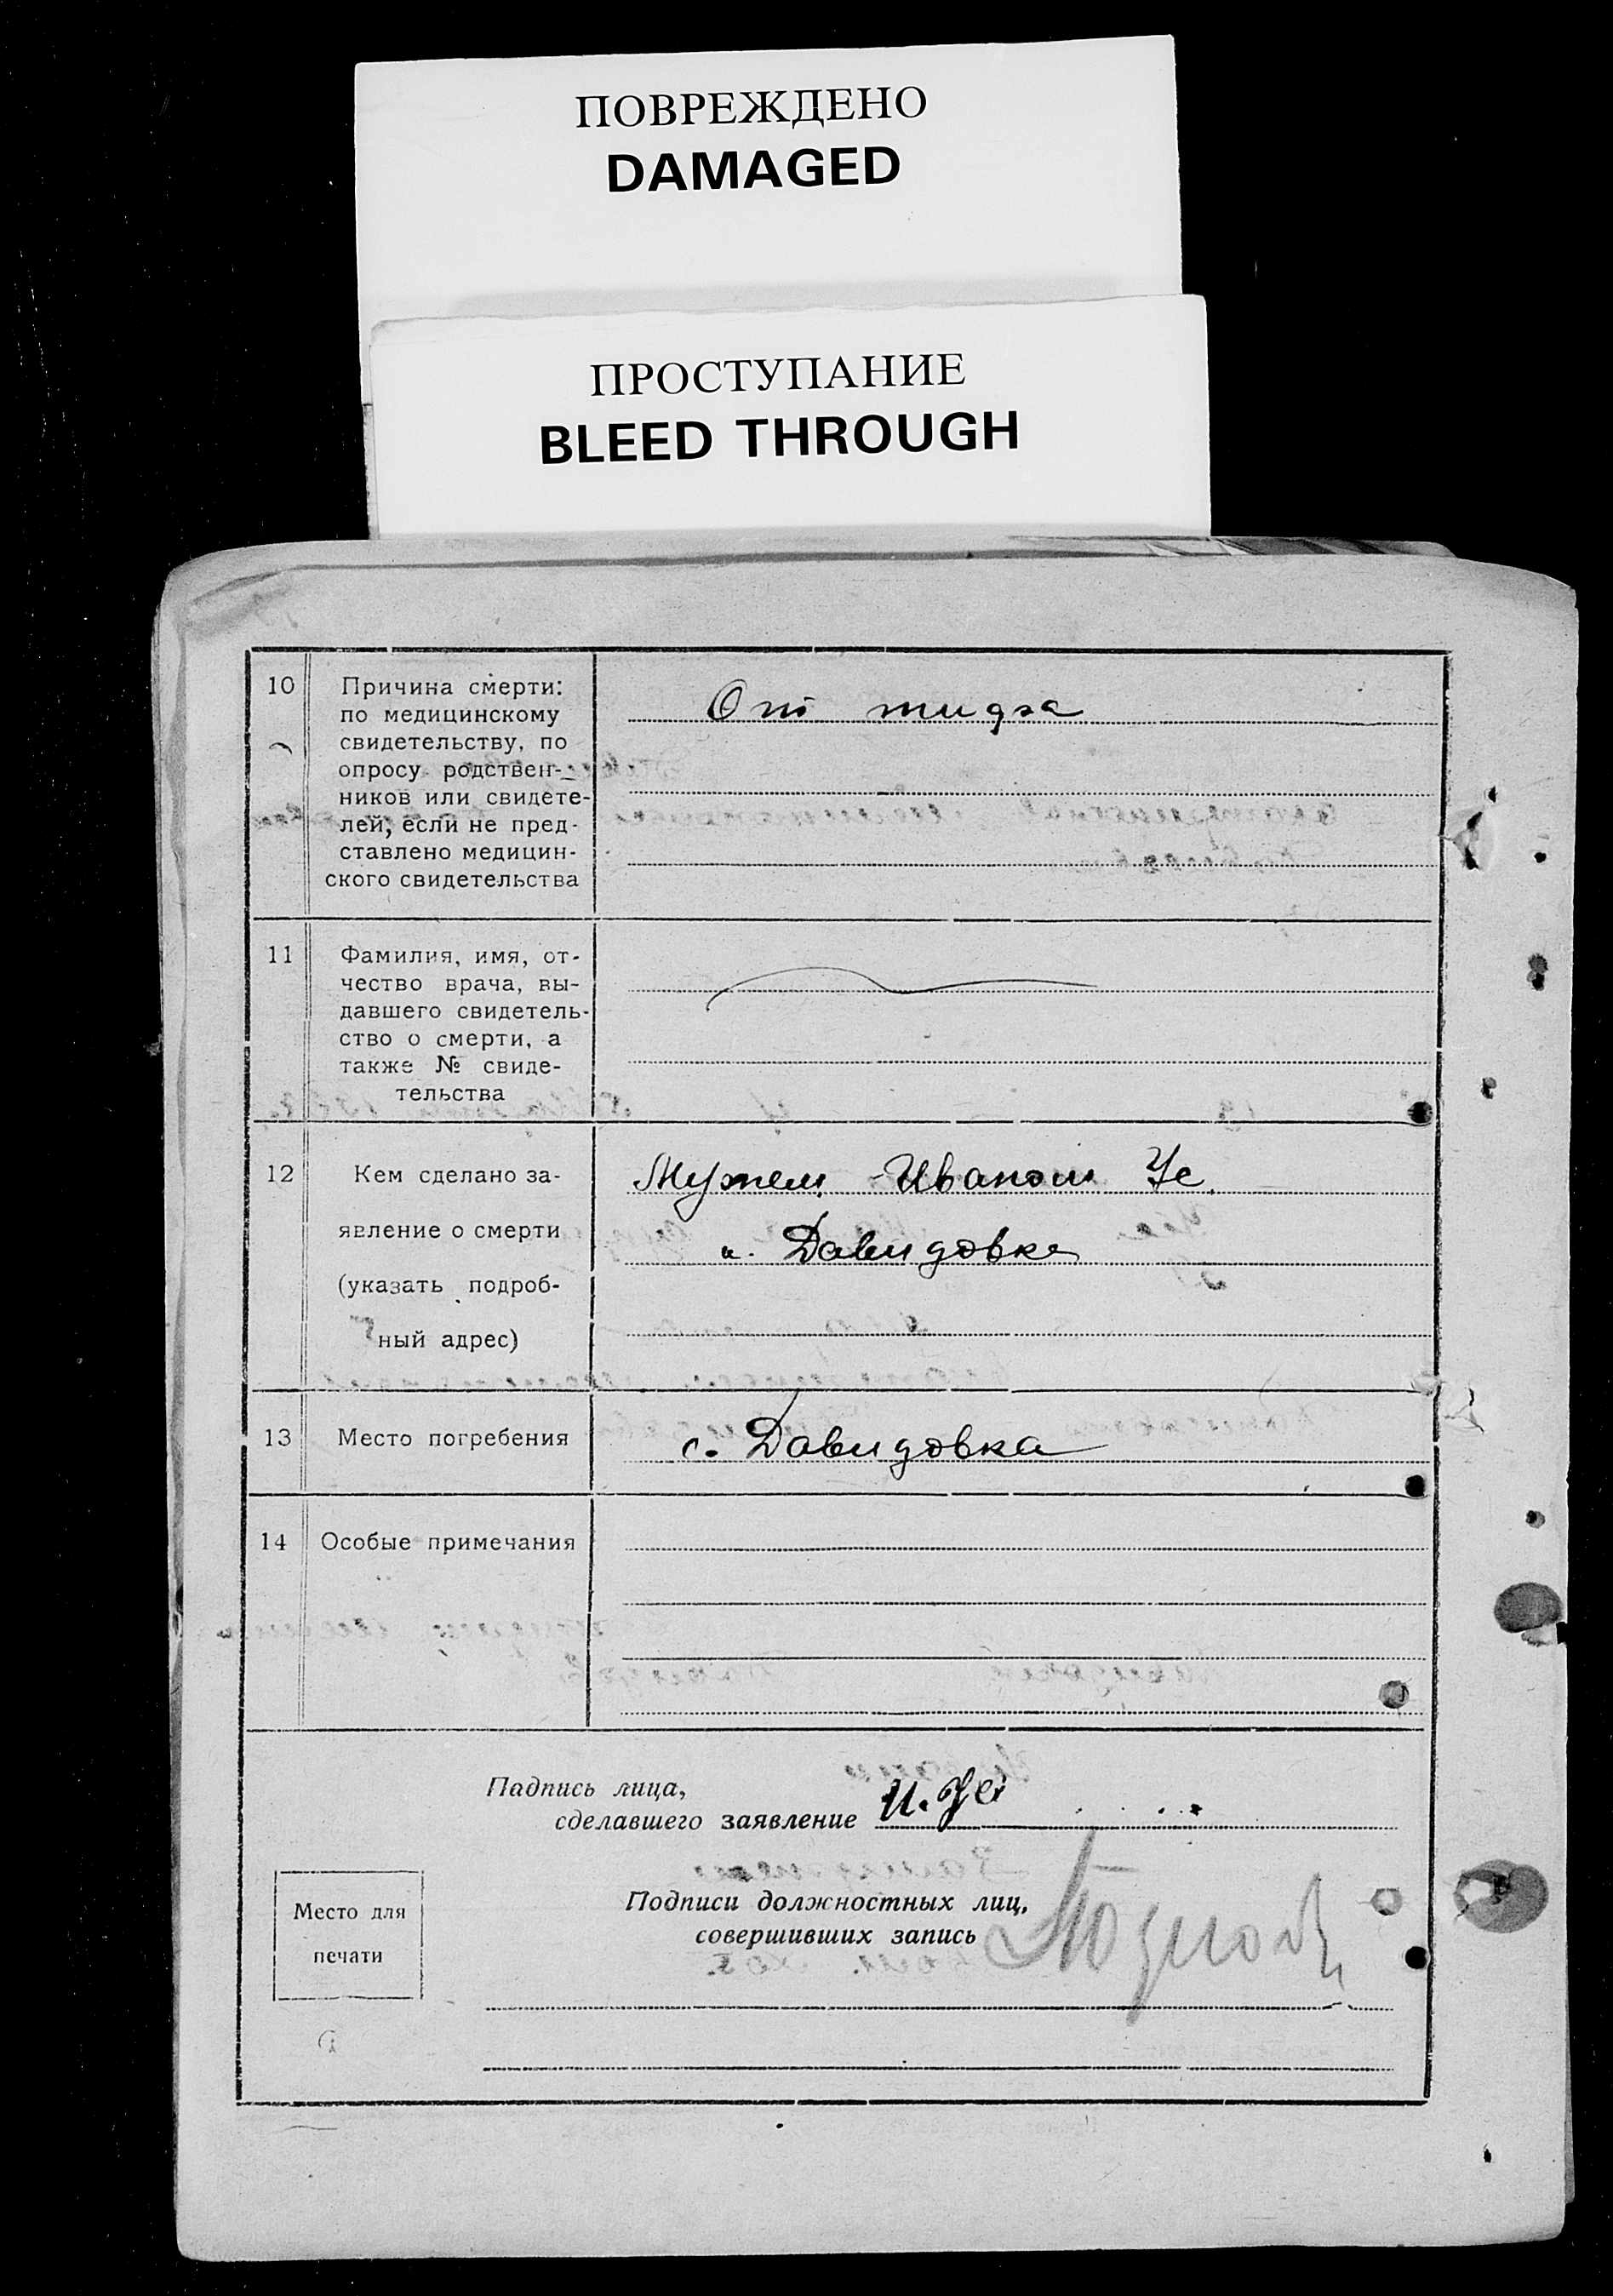 ПОВРЕЖДЕНО
DAMAGED
ПРОСТУПАНИЕ
BLEED THROUGH
10
Причина смерти:
по медицинскому
свидетельству, по
опросу родствен-
ников или свидете-
лей, если не пред-
ставлено медицин-
ского свидетельства
От тифа
11
Фамилия, имя, от-
чество врача, вы-
давшего свидетель-
ство о смерти, а
также № свиде-
тельства
12
Кем сделано за-
явление о смерти
(указать подроб-
ный адрес)
Мужем Иваном Ус
Давидовка
13
Место погребения
с. Давидовка
14
Особые примечания
Падпись лица,
сделавшего заявление И. Ус
Подписи должностных лиц,
совершивших запись
Место для
печати